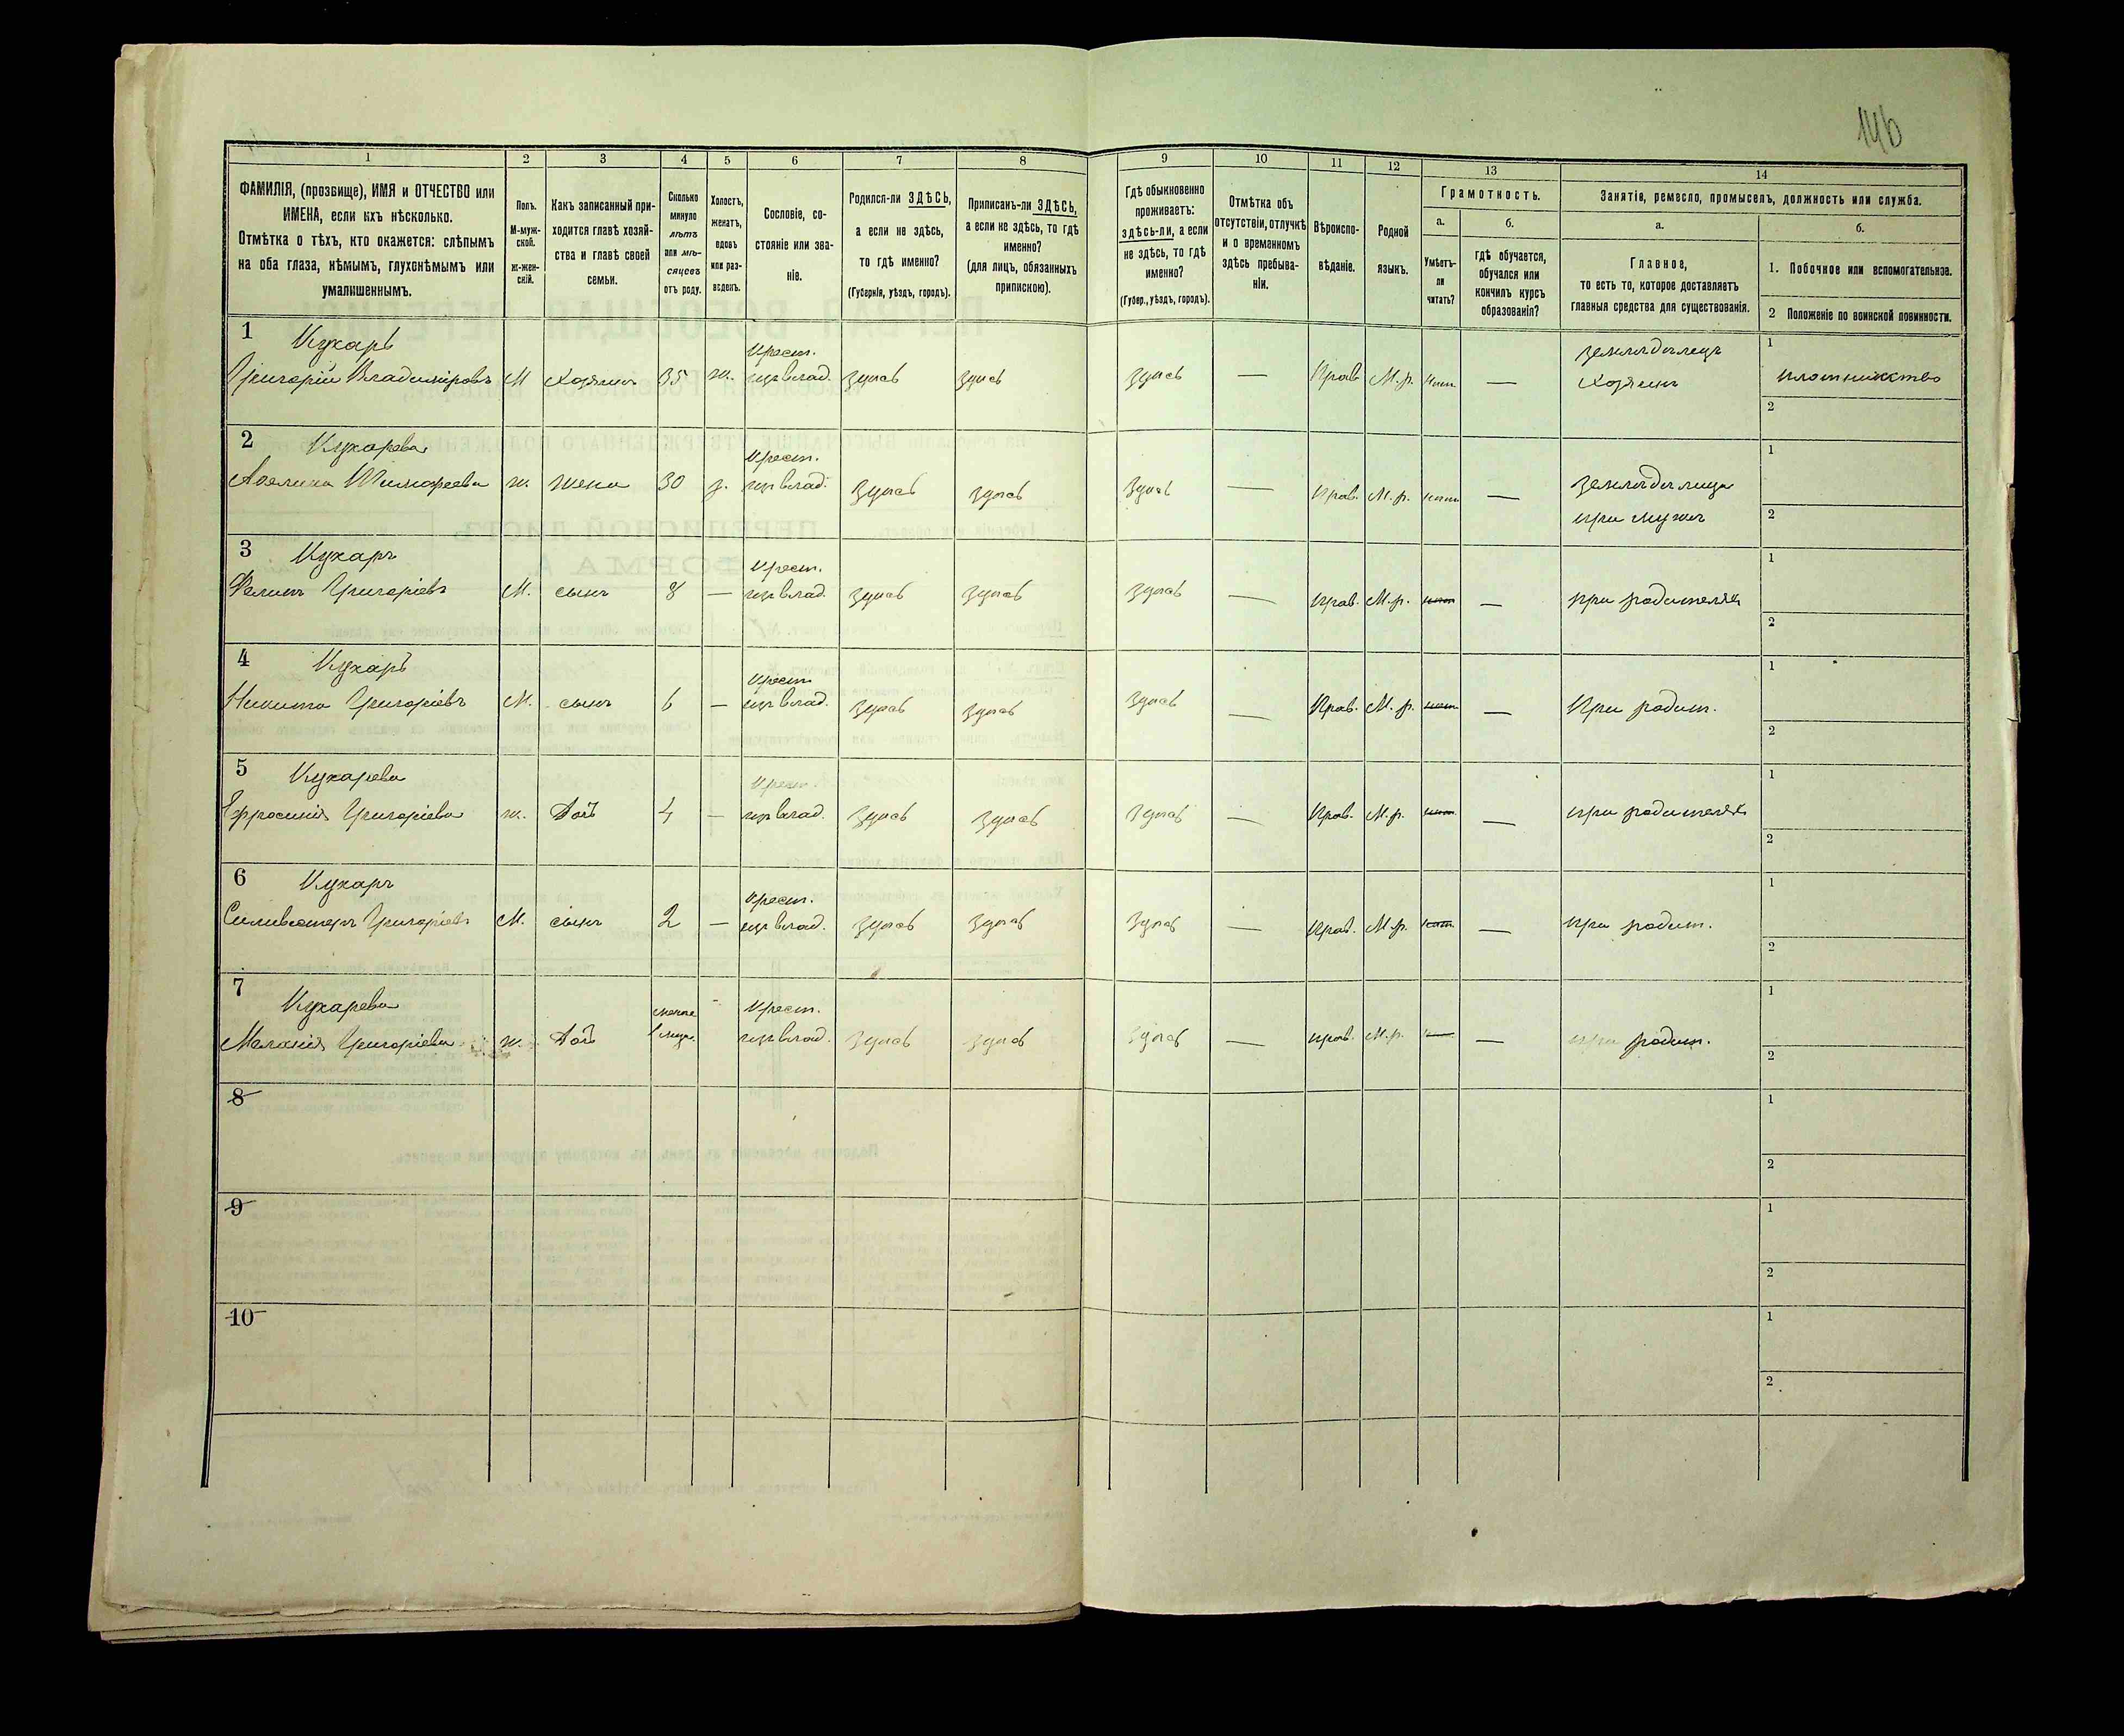 146
1 2 3 4 5 6 7 8 9 10 11 12 13 14
ФАМИЛІЯ, (прозвище), ИМЯ и ОТЧЕСТВО или
ИМЕНА, если ихъ нѣсколько.
Отмѣтка о тѣхъ, кто окажется: слѣпымъ
на оба глаза, нѣмымъ, глухонѣмымъ или
умалишеннымъ.
Полъ.
М-муж-
ской.
ж-жен-
скій.
Какъ записанный при-
ходится главѣ хозяй-
ства и главѣ своей
семьи.
Сколько
минуло
лѣтъ
или мѣ-
сяцевъ
отъ роду.
Холостъ,
женатъ,
вдовъ
или раз-
веденъ.
Сословіе, со-
стояніе или зва-
ніе.
Родился-ли ЗДѢСЬ,
а если не здѣсь,
то гдѣ именно?
(Губернія, уѣздъ, городъ).
Приписанъ-ли ЗДѢСЬ,
а если не здѣсь, то гдѣ
именно?
(для лицъ, обязанныхъ
припискою).
Гдѣ обыкновенно
проживаетъ:
здѣсь-ли, а если
не здѣсь, то гдѣ
именно?
(Губер., уѣздъ, городъ).
Отмѣтка объ
отсутствіи, отлучкѣ
и о временномъ
здѣсь пребыва-
ніи.
Вѣроиспо-
вѣданіе.
Родной
языкъ.
Грамотность.
а.
Умѣетъ-
ли
читать?
б.
гдѣ обучается,
обучался или
кончилъ курсъ
образованія?
Занятіе, ремесло, промыселъ, должность или служба.
а.
Главное,
то есть то, которое доставляетъ
главныя средства для существованія.
б.
1. Побочное или вспомогательное.
2 Положеніе по воинской повинности.
1 Кухарь Крест. земледѣлецъ 1
Григорій Владиміровъ М Хозяинъ 35 ж. изъ влад. здѣсь здѣсь здѣсь — Прав М.р. нѣт — Хозяинъ плотничество
2
2 Кухарева Крест. 1
Тимофеева ж. жена 30 з. изъ влад. здѣсь здѣсь здѣсь — Прав. М.р. нѣт — земледѣлица
при мужѣ 2
3 Кухарь Крест. 1
Филипъ Григоріевъ М. сынъ 8 — изъ влад. здѣсь здѣсь здѣсь — Прав. М.р. нѣт — при родителяхъ
2
4 Кухарь Крест. 1
Никита Григоріевъ М. сынъ 6 — изъ влад. здѣсь здѣсь здѣсь — Прав. М.р. нѣт — При родит.
2
5 Кухарева Крест. 1
Ефросинія Григоріева ж. Дочь 4 — изъ влад. здѣсь здѣсь здѣсь — Прав. М.р. нѣт — при родителяхъ
2
6 Кухарь Крест. 1
Силивестръ Григоріевъ М. сынъ 2 — изъ влад. здѣсь здѣсь здѣсь — Прав. М.р. нѣт — при родит.
2
7 Кухарева менѣе - Крест. 1
Маланія Григоріева ж. Дочь 1 мѣся. изъ влад. здѣсь здѣсь здѣсь — Прав. М.р. — при родит.
2
8 1
2
9 1
2
10 1
2